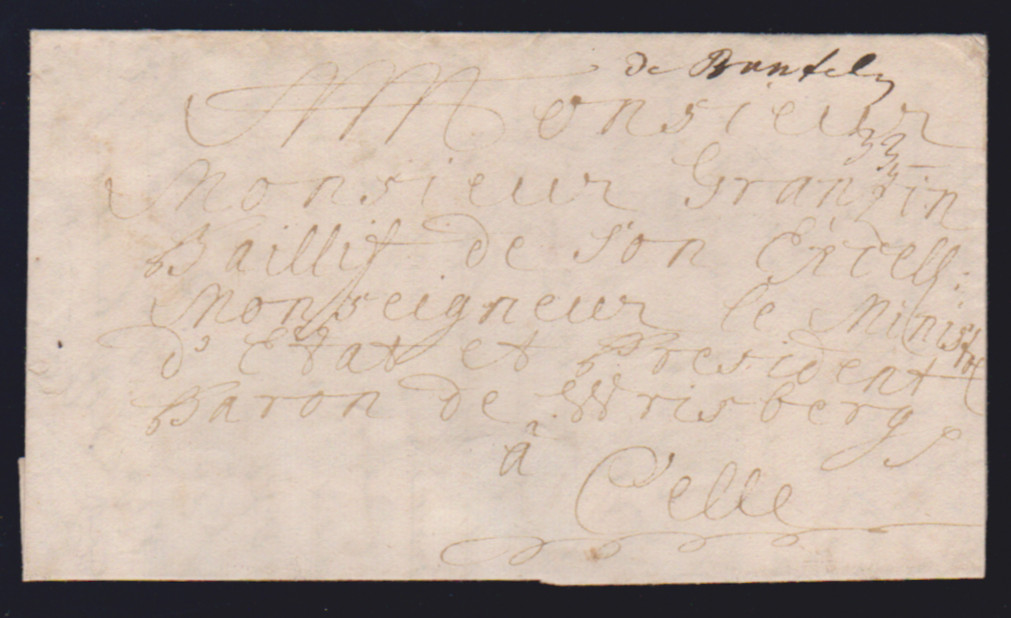 de
A Monsieur
Monsieur Grantzin
Baillif de Son Excell:
Monseigneur le Ministre
d'Etat et President
Baron de Wrisberg
à
Celle